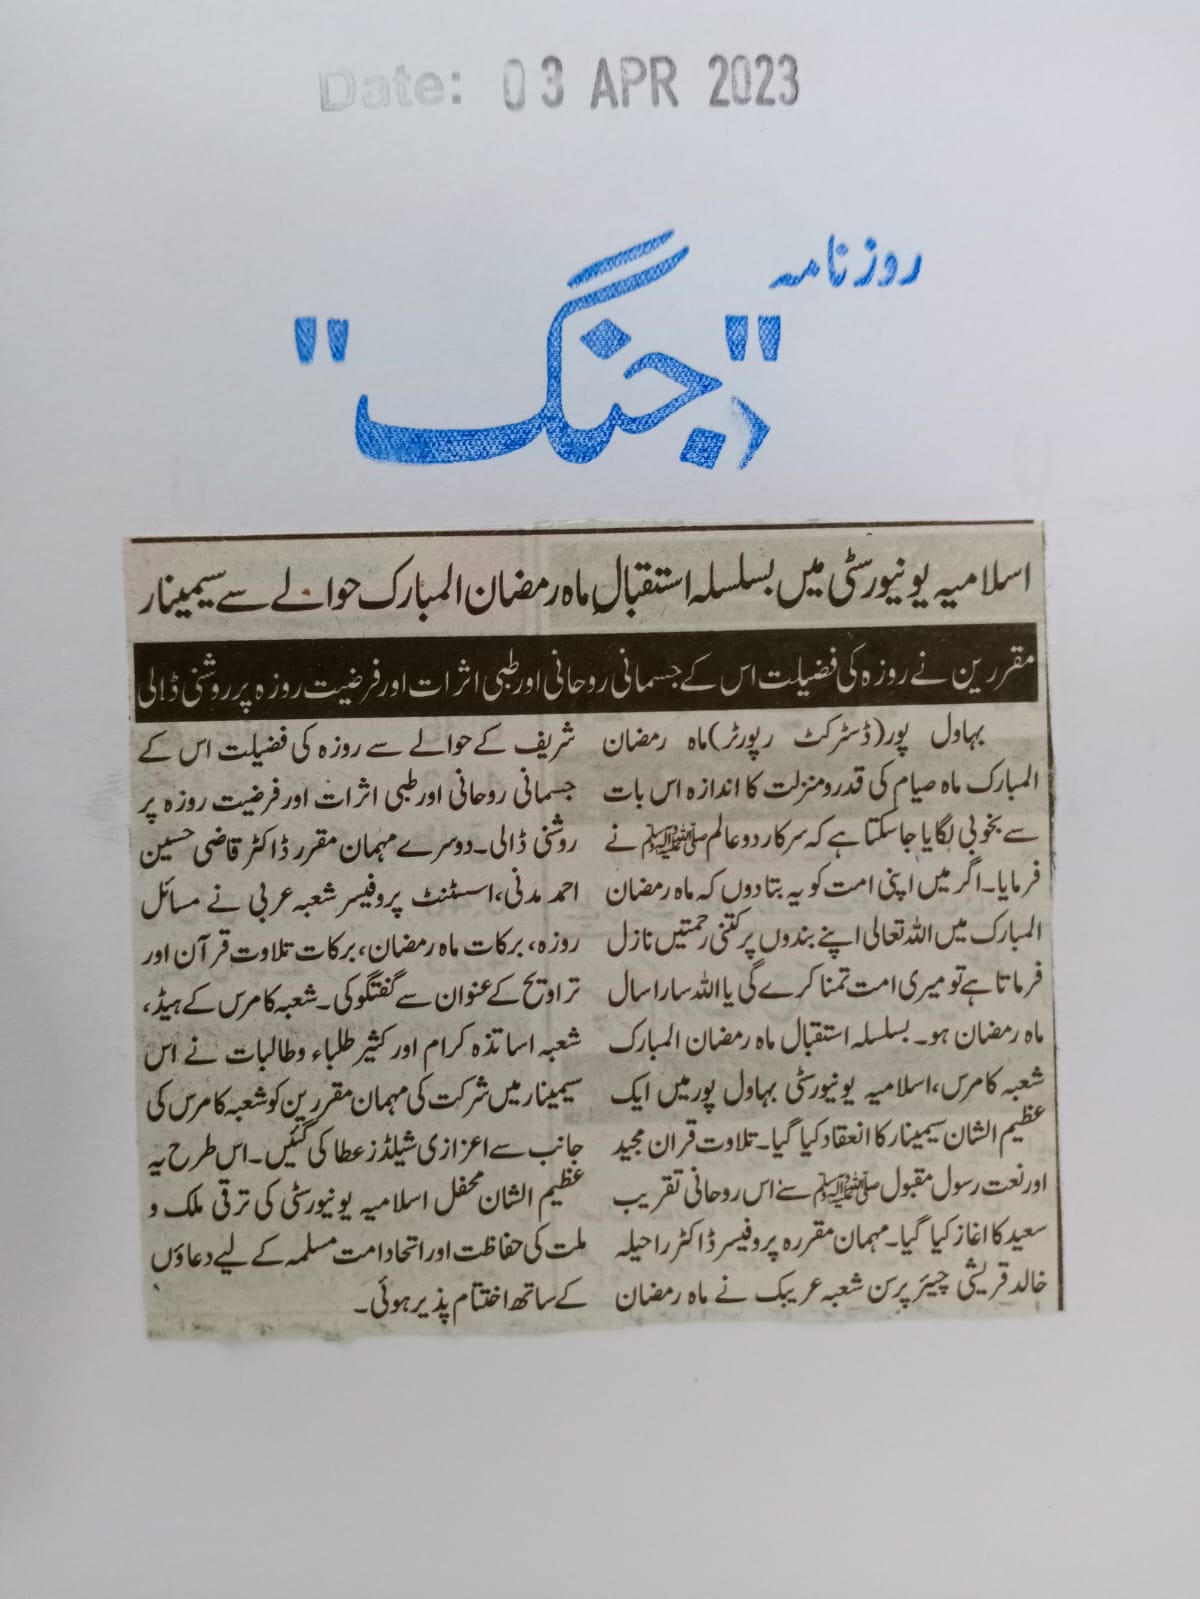 Date: 03 APR 2023
روزنامہ
"جنگ"
اسلامیہ یونیورسٹی میں بسلسلہ استقبال ماہ رمضان المبارک حوالے سے سیمینار
مقررین نے روزہ کی فضیلت اس کے جسمانی روحانی اور طبی اثرات اور فرضیت روزہ پر روشنی ڈالی
بہاول پور (ڈسٹرکٹ رپورٹر) ماہ رمضان
المبارک ماہ صیام کی قدر و منزلت کا اندازہ اس بات
سے بخوبی لگایا جا سکتا ہے کہ سرکار دو عالم ﷺ نے
فرمایا۔ اگر میں اپنی امت کو یہ بتا دوں کہ ماہ رمضان
المبارک میں اللہ تعالی اپنے بندوں پر کتنی رحمتیں نازل
فرماتا ہے تو میری امت تمنا کرے گی یا اللہ سارا سال
ماہ رمضان ہو۔ بسلسلہ استقبال ماہ رمضان المبارک
شعبہ کامرس، اسلامیہ یونیورسٹی بہاول پور میں ایک
عظیم الشان سیمینار کا انعقاد کیا گیا۔ تلاوت قران مجید
اور نعت رسول مقبول ﷺ سے اس روحانی تقریب
سعید کا اغاز کیا گیا۔ مہمان مقررہ پروفیسر ڈاکٹر راحیلہ
خالد قریشی چیئر پرسن شعبہ عریبک نے ماہ رمضان
شریف کے حوالے سے روزہ کی فضیلت اس کے
جسمانی روحانی اور طبی اثرات اور فرضیت روزہ پر
روشنی ڈالی۔ دوسرے مہمان مقرر ڈاکٹر قاضی حسین
احمد مدنی، اسسٹنٹ پروفیسر شعبہ عربی نے مسائل
روزہ، برکات ماہ رمضان، برکات تلاوت قرآن اور
تراویح کے عنوان سے گفتگو کی۔ شعبہ کامرس کے ہیڈ،
شعبہ اساتذہ کرام اور کثیر طلباء و طالبات نے اس
سیمینار میں شرکت کی مہمان مقررین کو شعبہ کامرس کی
جانب سے اعزازی شیلڈز عطا کی گئیں۔ اس طرح یہ
عظیم الشان محفل اسلامیہ یونیورسٹی کی ترقی ملک و
ملت کی حفاظت اور اتحاد امت مسلمہ کے لیے دعاؤں
کے ساتھ اختتام پذیر ہوئی۔